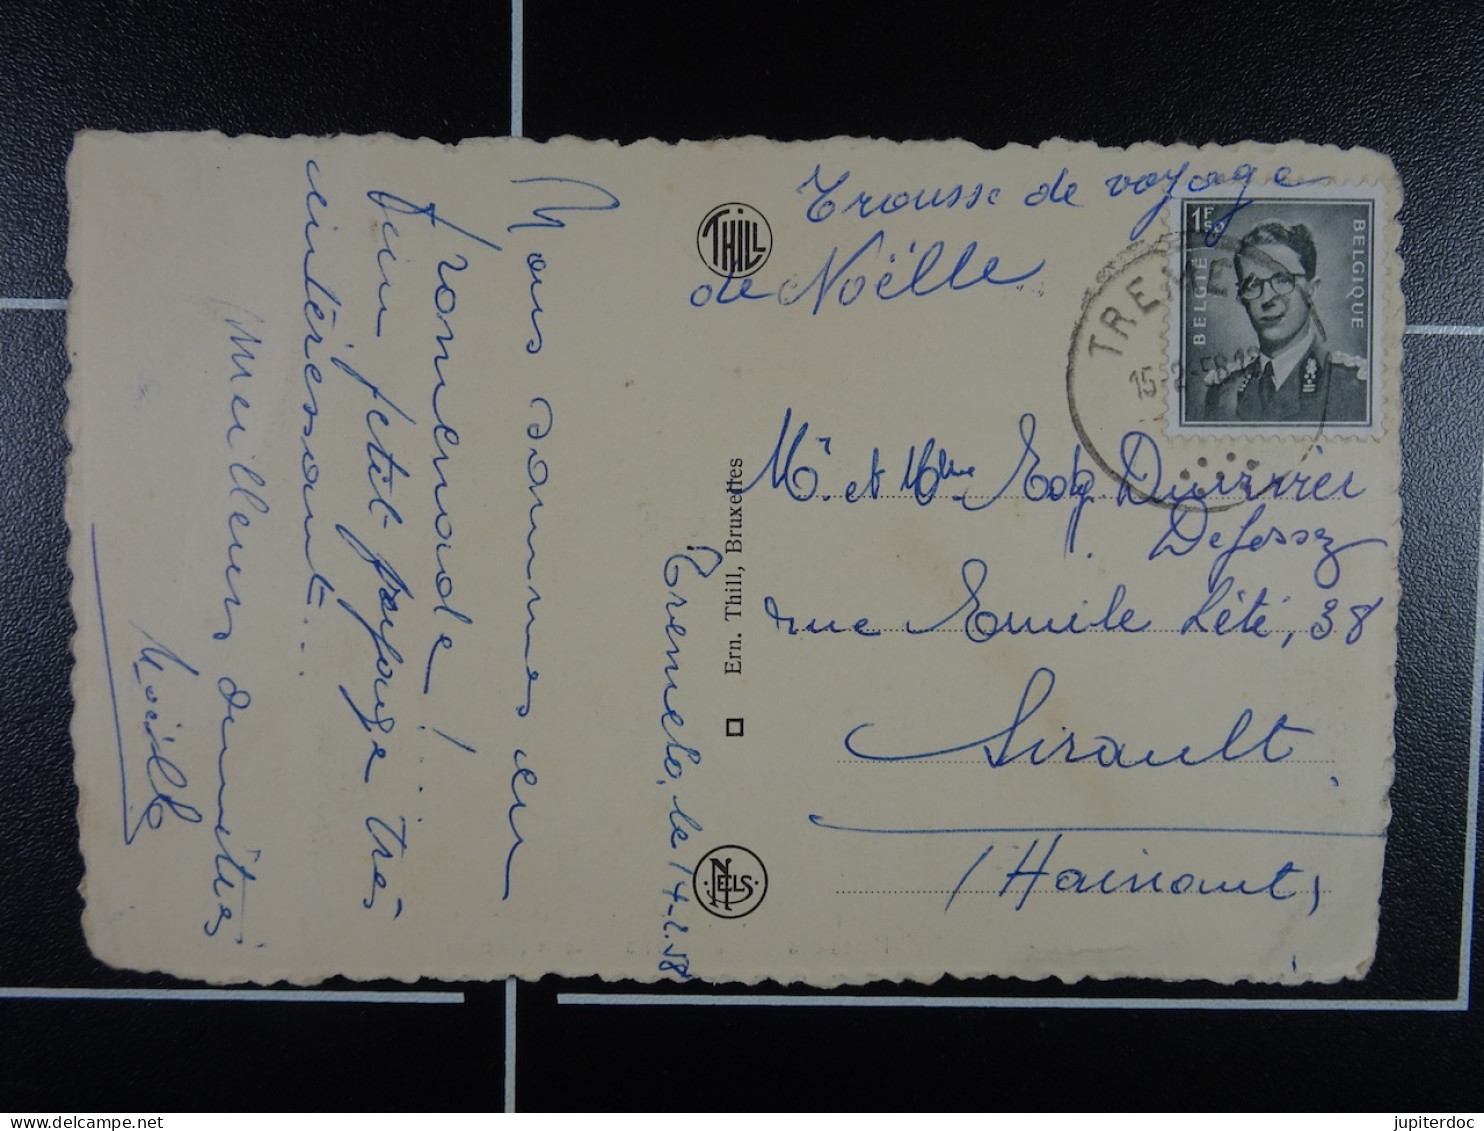 Nous sommes en
promenade!
Un petit voyage très
intéressant...
Meilleures amitiés
Noëlle
Tremelo, le 14-2.58
THILL
Ern. Thill, Bruxelles
NELS
Trousse de voyage
de Noëlle
1F50
BELGIE
BELGIQUE
TREMEL
15-2-58-18
Mr. et Mme Edg. Durivier
Defossez
rue Emile Lété, 38
Sirault
(Hainaut)
jupiterdoc